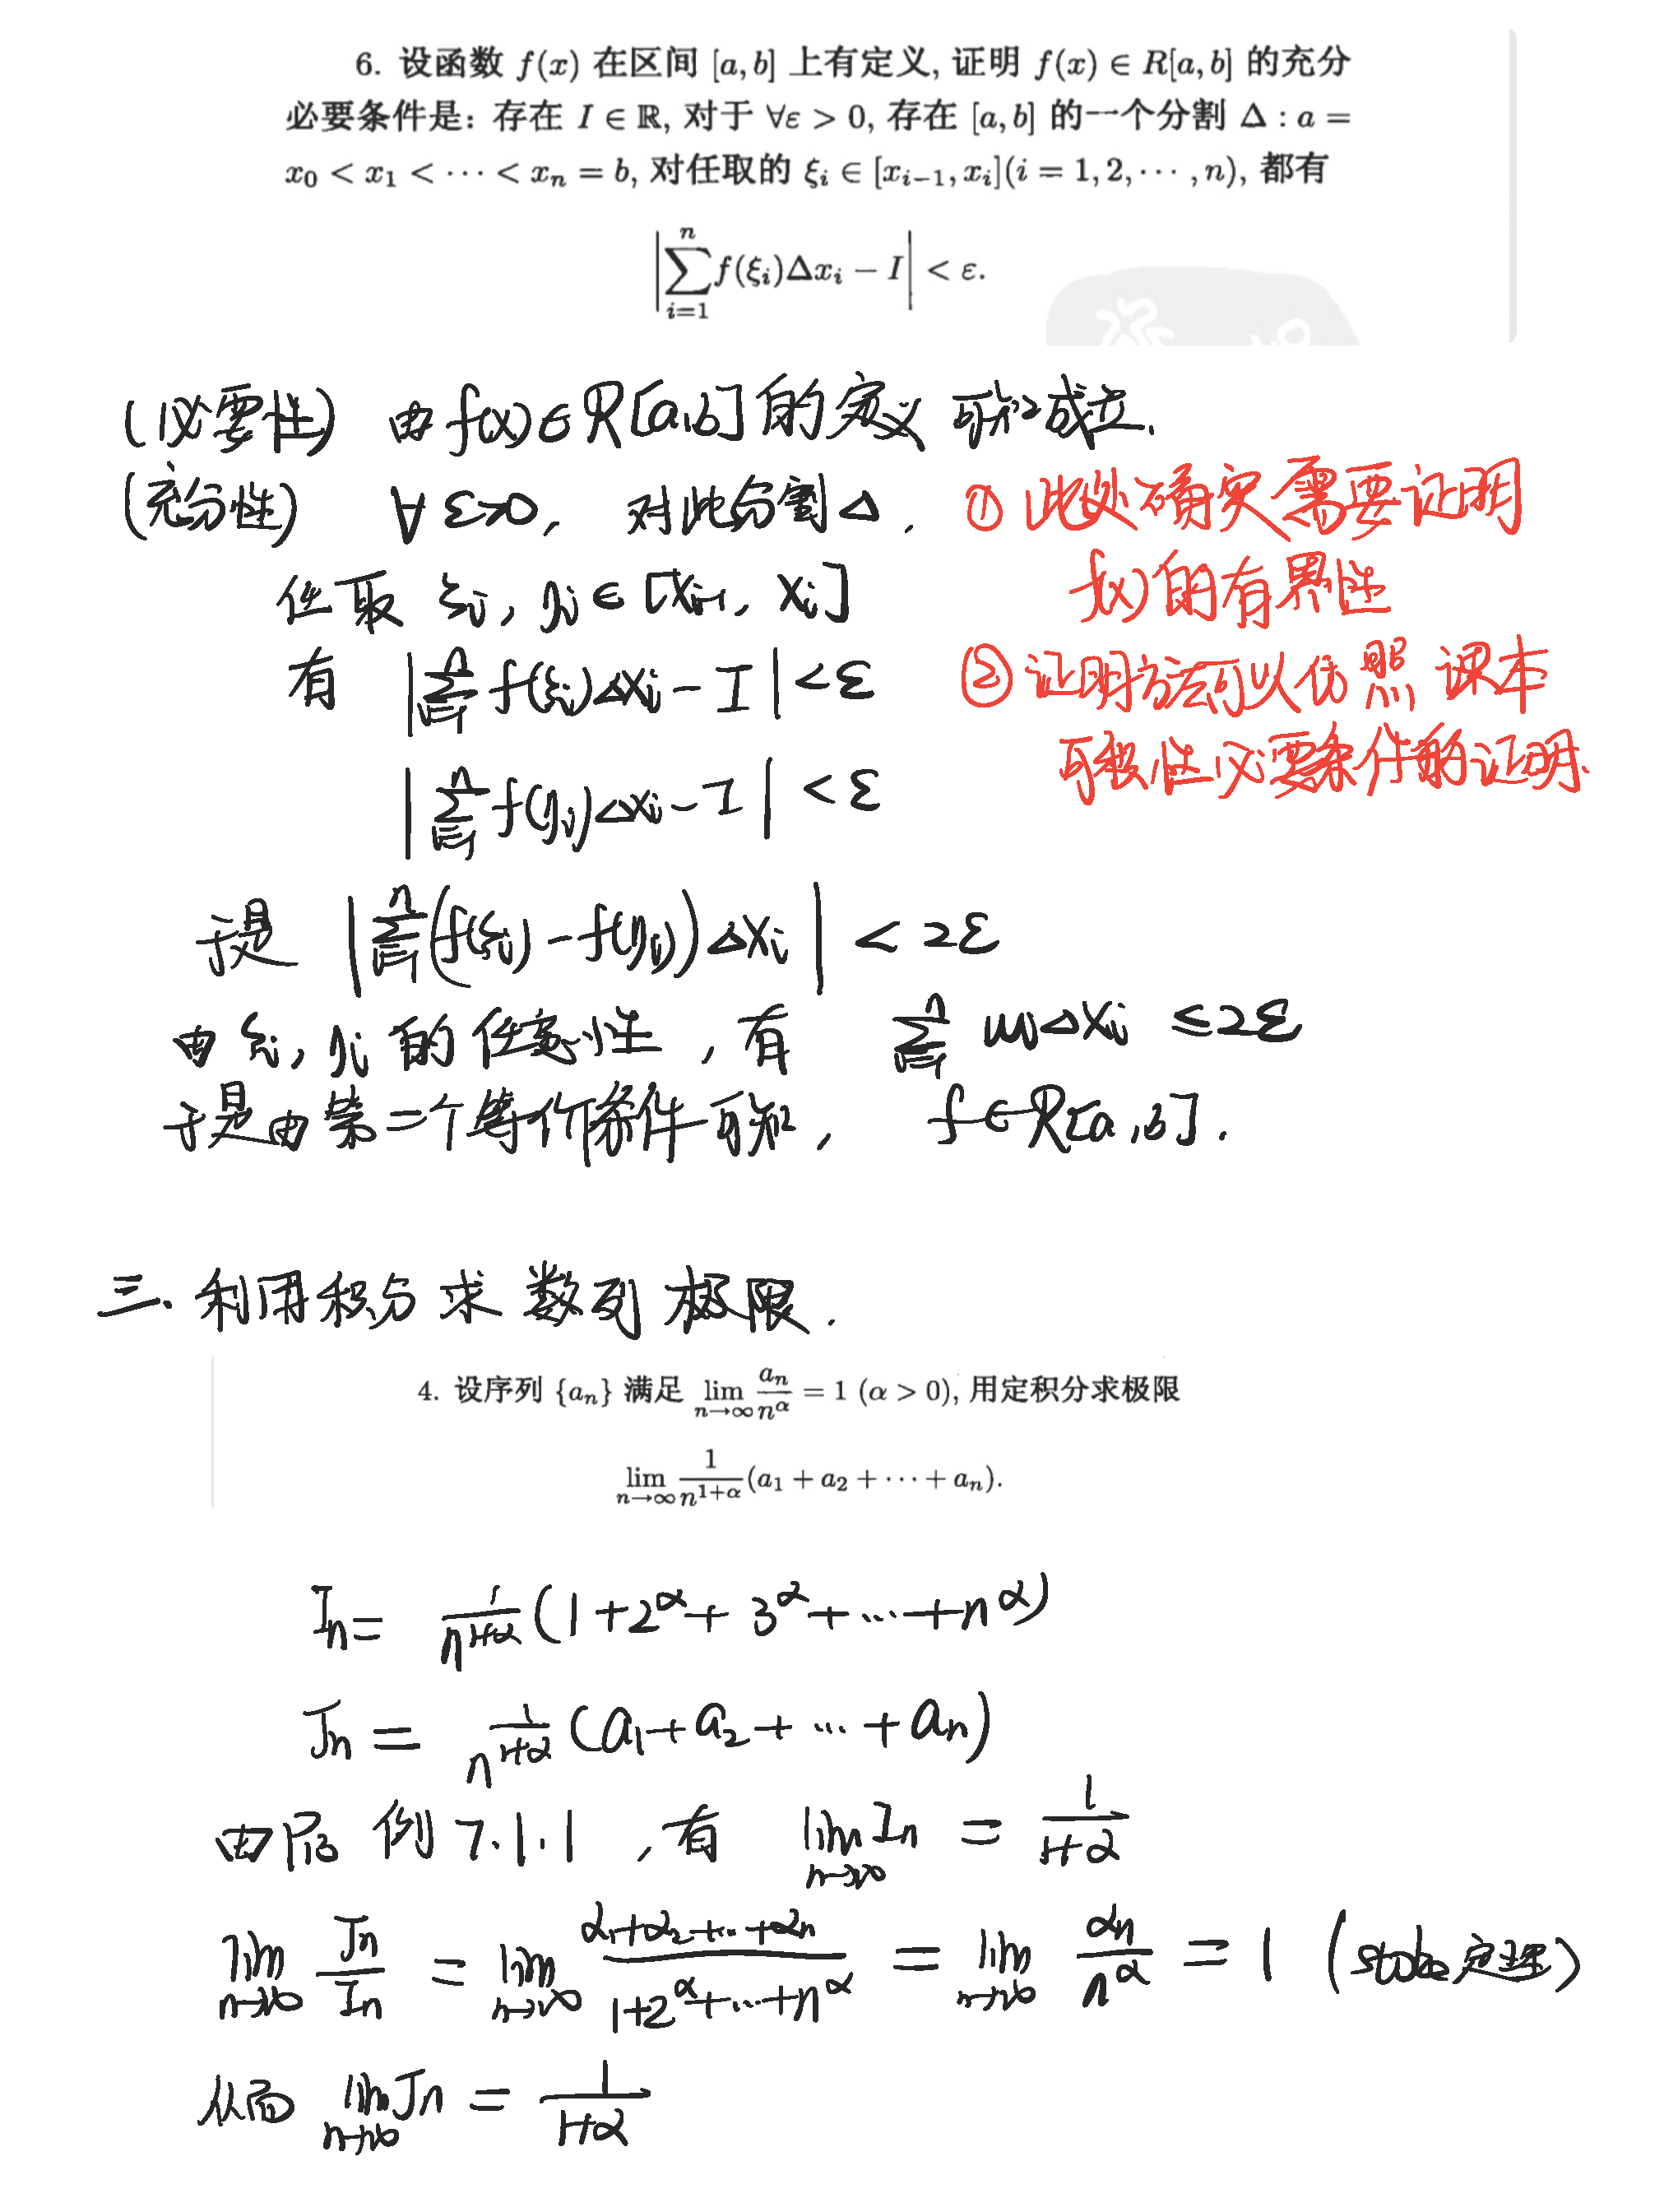 6. 设函数 f(x) 在区间 [a, b] 上有定义, 证明 f(x) ∈ R[a, b] 的充分
必要条件是: 存在 I ∈ ℝ, 对于 ∀ε > 0, 存在 [a, b] 的一个分割 Δ : a =
x₀ < x₁ < ⋯ < xₙ = b, 对任取的 ξᵢ ∈ [xᵢ₋₁, xᵢ](i = 1, 2, ⋯ , n), 都有
|∑ᵢ₌₁ⁿ f(ξᵢ)Δxᵢ − I| < ε.
(必要性) 由 f(x) ∈ R[a,b] 的定义可知成立.
(充分性) ∀ ε>0, 对此分割 Δ,
① 此处确实需要证明
f(x) 的有界性
任取 ξᵢ, ηᵢ ∈ [xᵢ₋₁, xᵢ]
有 |∑ᵢ₌₁ⁿ f(ξᵢ)Δxᵢ − I| < ε
② 证明方法可以仿照 课本
可积性必要条件的证明.
|∑ᵢ₌₁ⁿ f(ηᵢ)Δxᵢ − I| < ε
于是 |∑ᵢ₌₁ⁿ (f(ξᵢ) − f(ηᵢ)) Δxᵢ| < 2ε
由 ξᵢ, ηᵢ 的任意性, 有 ∑ᵢ₌₁ⁿ ωᵢΔxᵢ ≤ 2ε
于是由第二个等价条件可知, f ∈ R[a,b].
三. 利用积分求数列极限.
4. 设序列 {aₙ} 满足 lim_{n→∞} aₙ/n^α = 1 (α > 0), 用定积分求极限
lim_{n→∞} 1/n^{1+α} (a₁ + a₂ + ⋯ + aₙ).
Iₙ = 1/n^{1+α} (1 + 2^α + 3^α + ⋯ + n^α)
Jₙ = 1/n^{1+α} (a₁ + a₂ + ⋯ + aₙ)
由 P₁₃ 例 7.1.1, 有 lim_{n→∞} Iₙ = 1/(1+α)
lim_{n→∞} Jₙ/Iₙ = lim_{n→∞} (a₁+a₂+⋯+aₙ)/(1+2^α+⋯+n^α) = lim_{n→∞} aₙ/n^α = 1 (stolz 定理)
从而 lim_{n→∞} Jₙ = 1/(1+α)